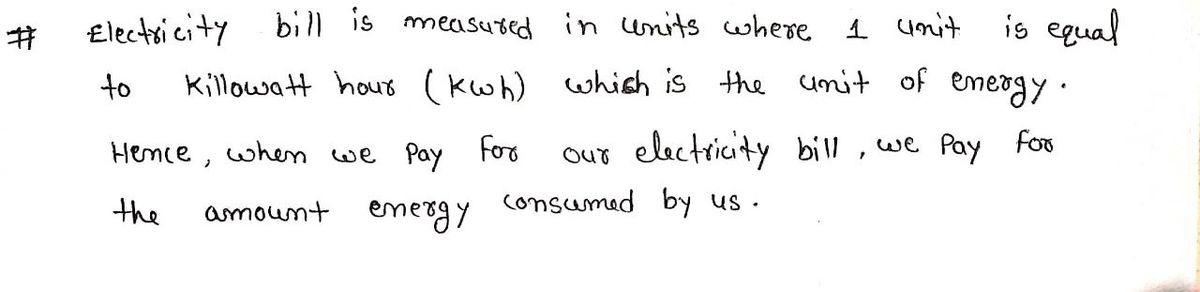 # Electricity bill is measured in units where 1 unit is equal
to Killowatt hour (kwh) which is the unit of energy.
Hence, when we Pay For our electricity bill, we Pay for
the amount energy consumed by us.